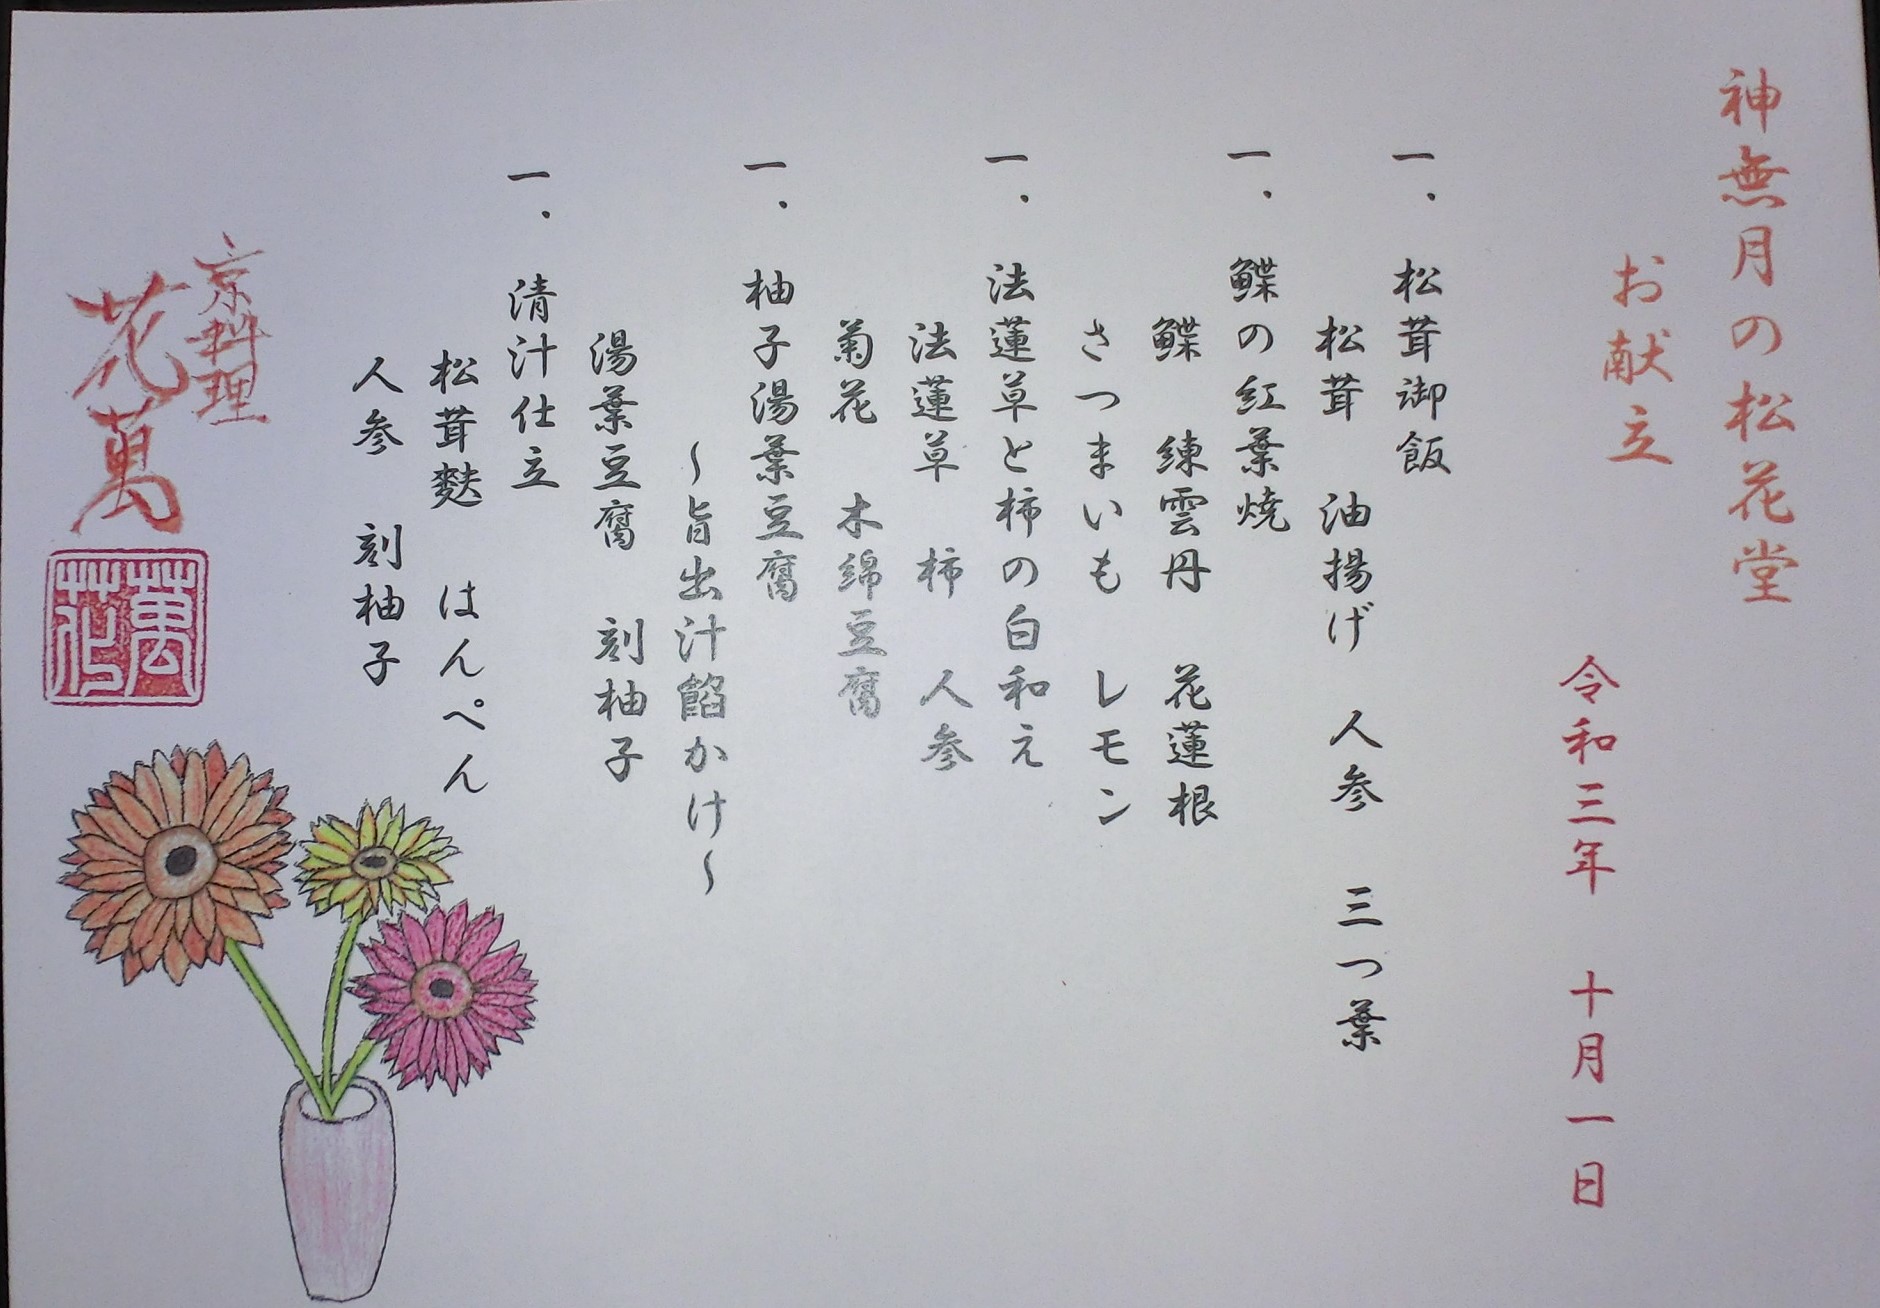 神無月の松花堂
お献立
令和三年 十月一日
一．松茸御飯
松茸 油揚げ 人参 三つ葉
一．鰈の紅葉焼
鰈 練雲丹 花蓮根
さつまいも レモン
一．法蓮草と柿の白和え
法蓮草 柿 人参
菊花 木綿豆腐
一．柚子湯葉豆腐
～旨出汁餡かけ～
湯葉豆腐 刻柚子
一．清汁仕立
松茸麩 はんぺん
人参 刻柚子
京料理
花萬
萬花